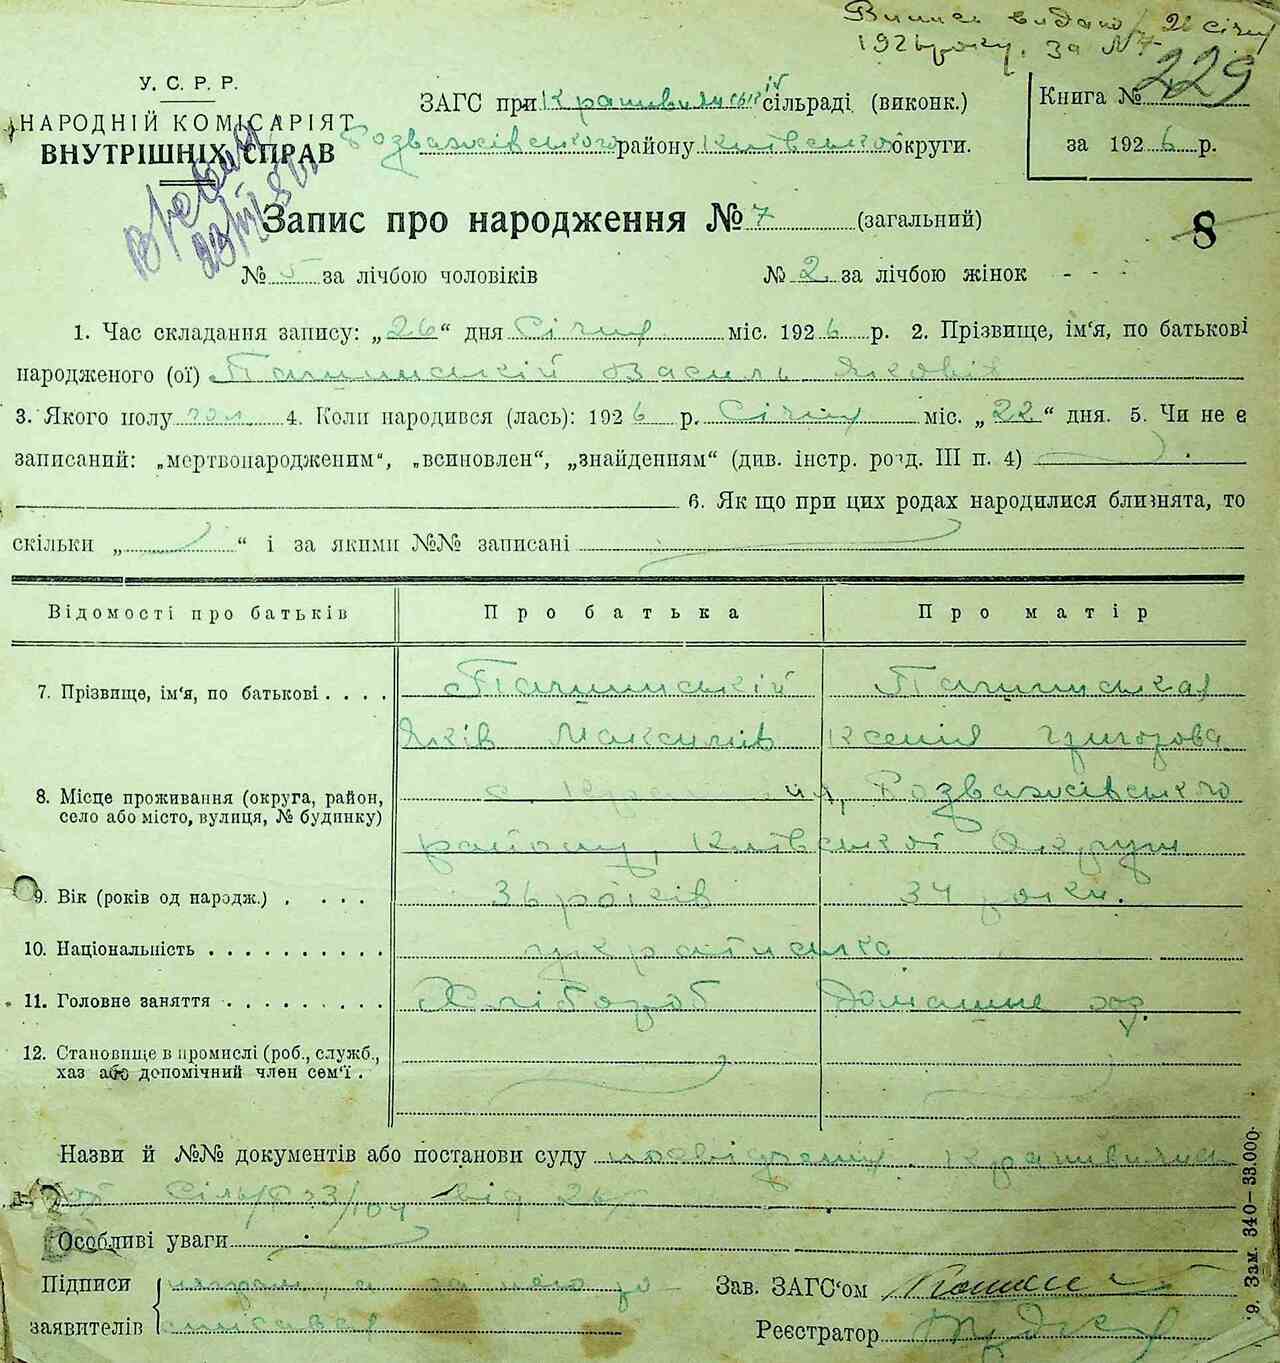 Випись видано 26 січня
192 року, за № 7
229
У. С. Р. Р.
НАРОДНІЙ КОМІСАРІЯТ
ВНУТРІШНІХ СПРАВ
ЗАГС при сільраді (виконк.)
Розважівського району Київської округи.
Книга №
за 1926 р.
Запис про народження № 7 (загальний)
8
№ 5 за лічбою чоловіків
№ 2 за лічбою жінок
1. Час складання запису: „26“ дня Січня міс. 1926 р. 2. Прізвище, ім‘я, по батькові
народженого (ої) Василь Яковів
3. Якого полу чол. 4. Коли народився (лась): 1926 р. Січня міс. „22“ дня. 5. Чи не є
записаний: „мертвонародженим“, „всиновлен“, „знайденням“ (див. інстр. розд. III п. 4)
6. Як що при цих родах народилися близнята, то
скільки „ “ і за якими №№ записані
Відомості про батьків Про батька Про матір
7. Прізвище, ім‘я, по батькові . . . .
Яків Максимів Ксенія Григорова
8. Місце проживання (округа, район, село або місто, вулиця, № будинку)
с. Розважівського
району, Київської Округи
9. Вік (років од народж.) . . . . 36 років 34 роки.
10. Національність . . . . . . . . . . українська
11. Головне заняття . . . . . . . . . Хлібороб Домашнє хоз.
12. Становище в промислі (роб., служб., хаз або допомічний член сем‘ї .
Назви й №№ документів або постанови суду
від 26/I
Особливі уваги
Підписи
заявителів
неграм., а за нього
Зав. ЗАГС‘ом
Реєстратор
9. Зам. 340—33.000.